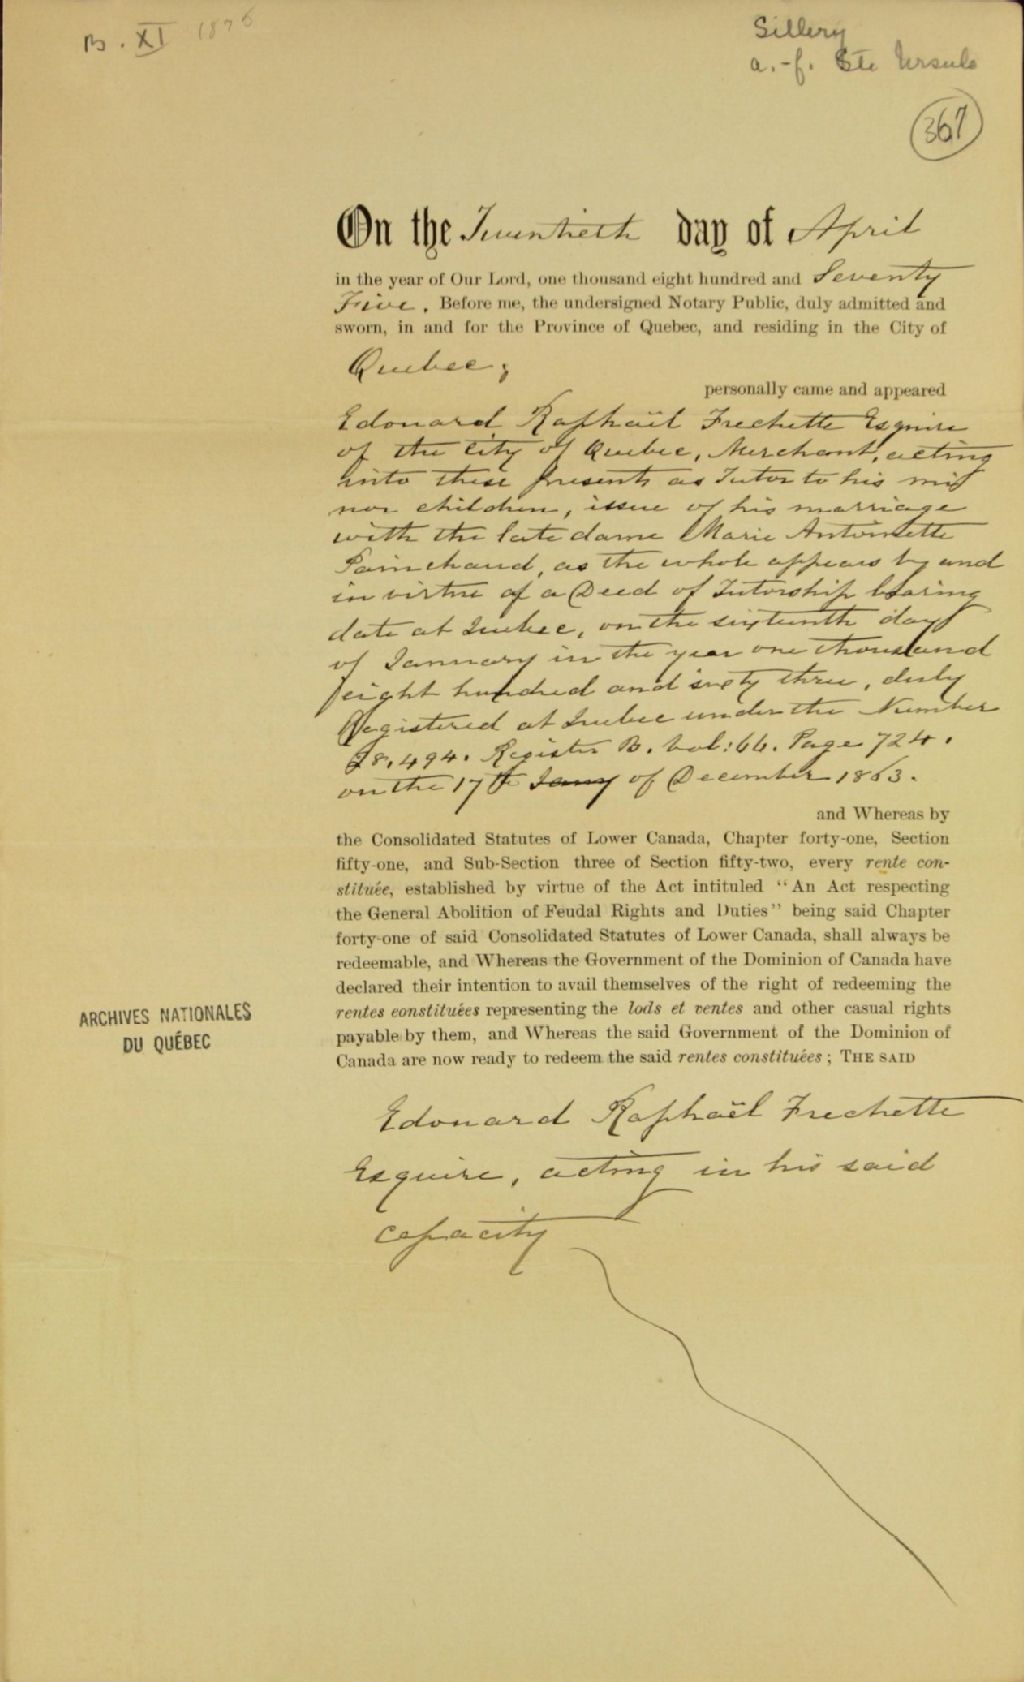 B. XI 1875
Sillery
a.-f. Ste Ursule
367
On the Twentieth day of April
in the year of Our Lord, one thousand eight hundred and Seventy
Five. Before me, the undersigned Notary Public, duly admitted and
sworn, in and for the Province of Quebec, and residing in the City of
Quebec;
personally came and appeared
Edouard Raphaël Frechette Esquire
of the City of Quebec, Merchant, acting
into these presents as Tutor to his mi
nor children, issue of his marriage
with the late dame Marie Antoinette
Painchaud, as the whole appears by and
in virtue of a Deed of Tutorship bearing
date at Quebec, on the sixteenth day
of January in the year one thousand
eight hundred and sixty three, duly
Registered at Quebec under the Number
28.494. Register B. Vol: 66. Page 724.
on the 17th Jany of December 1863.
and Whereas by
the Consolidated Statutes of Lower Canada, Chapter forty-one, Section
fifty-one, and Sub-Section three of Section fifty-two, every rente con-
stituée, established by virtue of the Act intituled "An Act respecting
the General Abolition of Feudal Rights and Duties" being said Chapter
forty-one of said Consolidated Statutes of Lower Canada, shall always be
redeemable, and Whereas the Government of the Dominion of Canada have
declared their intention to avail themselves of the right of redeeming the
rentes constituées representing the lods et ventes and other casual rights
payable by them, and Whereas the said Government of the Dominion of
Canada are now ready to redeem the said rentes constituées; THE SAID
ARCHIVES NATIONALES
DU QUÉBEC
Edouard Raphaël Frechette
Esquire, acting in his said
capacity